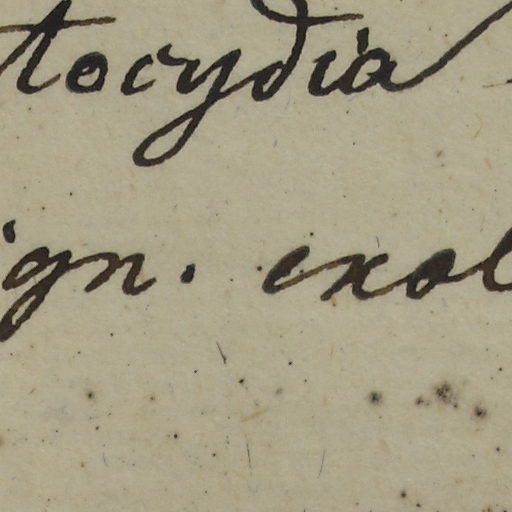 tocydia
ign. exol